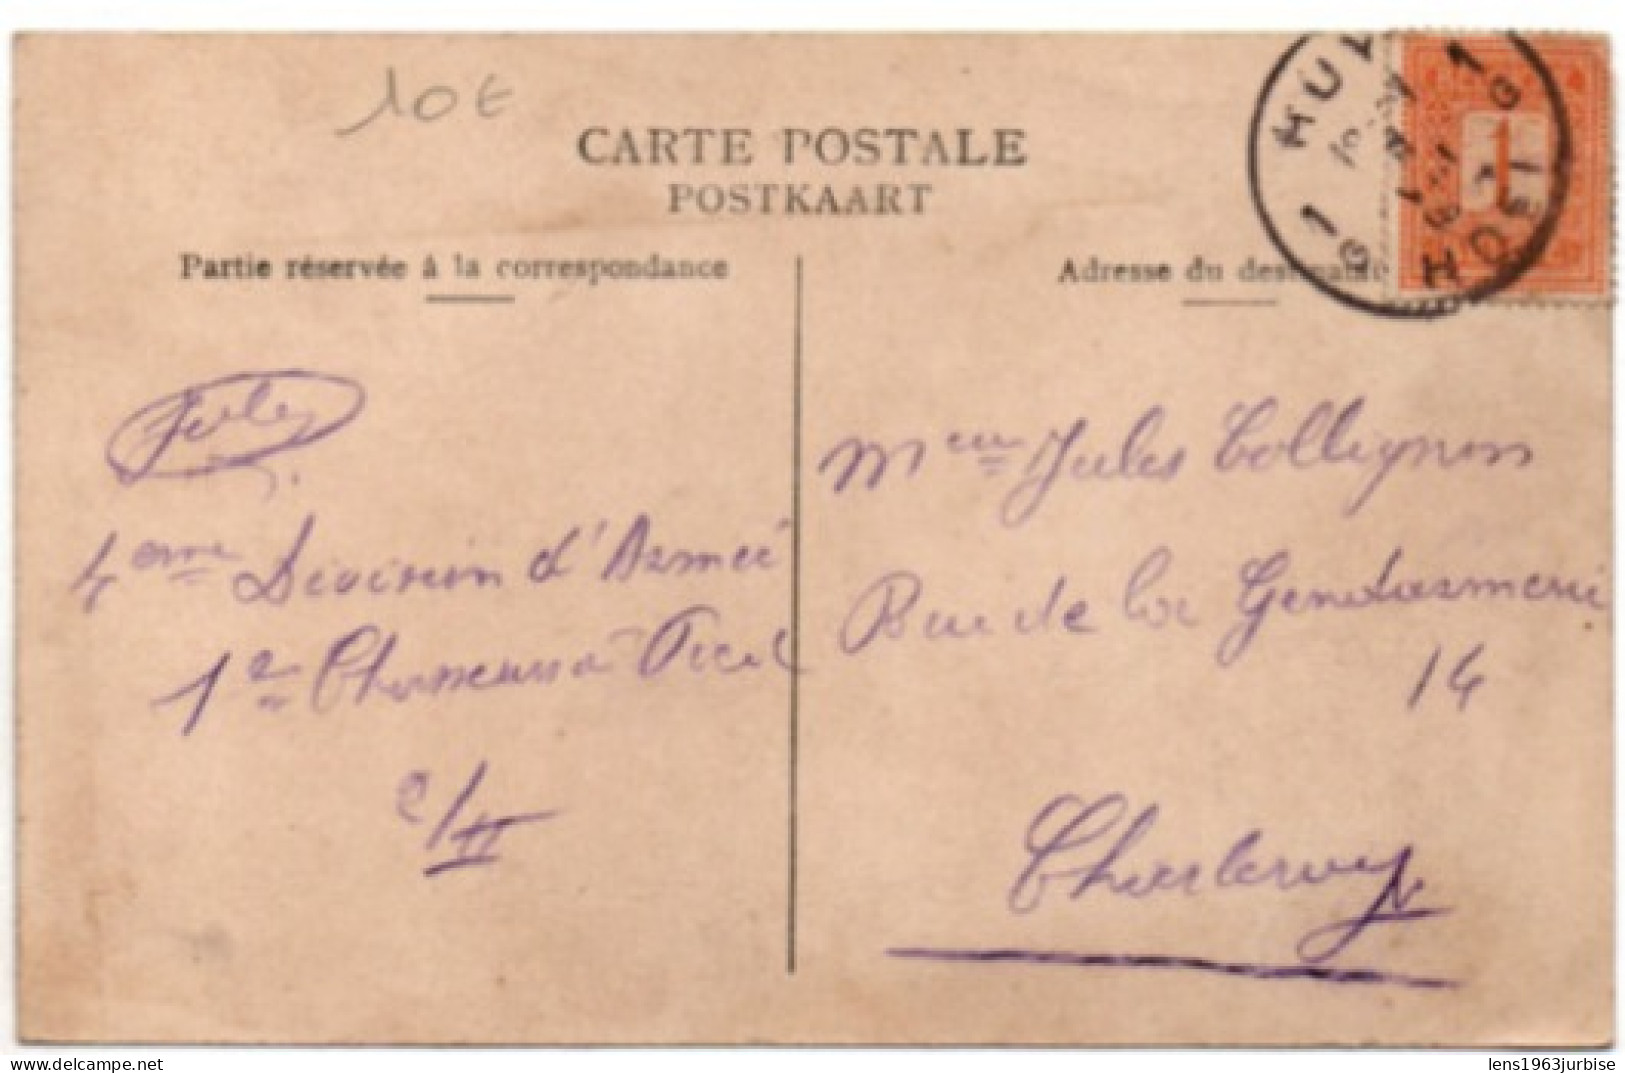 10€
CARTE POSTALE
POSTKAART
Partie réservée à la correspondance
Adresse du destinataire
Jules
4eme Division d'Armeé
1er Chasseurs à Pied
2/II
Meur Jules Collignon
Rue de la Gendarmerie
14
Charleroy
HUY
HOEI
1G
1G
1
lens1963jurbise